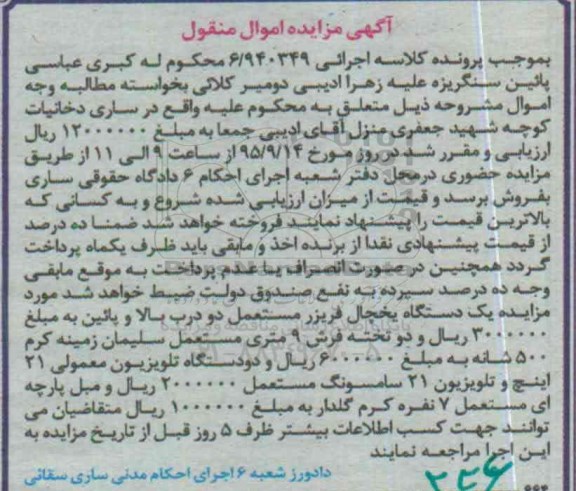 آگهی مزایده اموال منقول
بموجب پرونده کلاسه اجرائی ۶/۹۴۰۳۴۹ محکوم له کبری عباسی
پائین سنگریزه علیه زهرا ادیبی دومیر کلائی بخواسته مطالبه وجه
اموال مشروحه ذیل متعلق به محکوم علیه واقع در ساری دخانیات
کوچه شهید جعفری منزل آقای ادیبی جمعا به مبلغ ۱۲۰۰۰۰۰۰ ریال
ارزیابی و مقرر شد در روز مورخ ۹۵/۹/۱۴ از ساعت ۹ الی ۱۱ از طریق
مزایده حضوری درمحل دفتر شعبه اجرای احکام ۶ دادگاه حقوقی ساری
بفروش برسد و قیمت از میزان ارزیابی شده شروع و به کسانی که
بالاترین قیمت را پیشنهاد نمایند فروخته خواهد شد ضمنا ده درصد
از قیمت پیشنهادی نقدا از برنده اخذ و مابقی باید ظرف یکماه پرداخت
گردد همچنین در صورت انصراف یا عدم پرداخت به موقع مابقی
وجه ده درصد سپرده به نفع صندوق دولت ضبط خواهد شد مورد
مزایده یک دستگاه یخچال فریزر مستعمل دو درب بالا و پائین به مبلغ
۳۰۰۰۰۰۰ ریال و دو تخته فرش ۹ متری مستعمل سلیمان زمینه کرم
۵۰۰ شانه به مبلغ ۶۰۰۰۰۰۰ ریال و دودستگاه تلویزیون معمولی ۲۱
اینچ و تلویزیون ۲۱ سامسونگ مستعمل ۲۰۰۰۰۰۰ ریال و مبل پارچه
ای مستعمل ۷ نفره کرم گلدار به مبلغ ۱۰۰۰۰۰۰ ریال متقاضیان می
توانند جهت کسب اطلاعات بیشتر ظرف ۵ روز قبل از تاریخ مزایده به
این اجرا مراجعه نمایند
دادورز شعبه ۶ اجرای احکام مدنی ساری سقائی